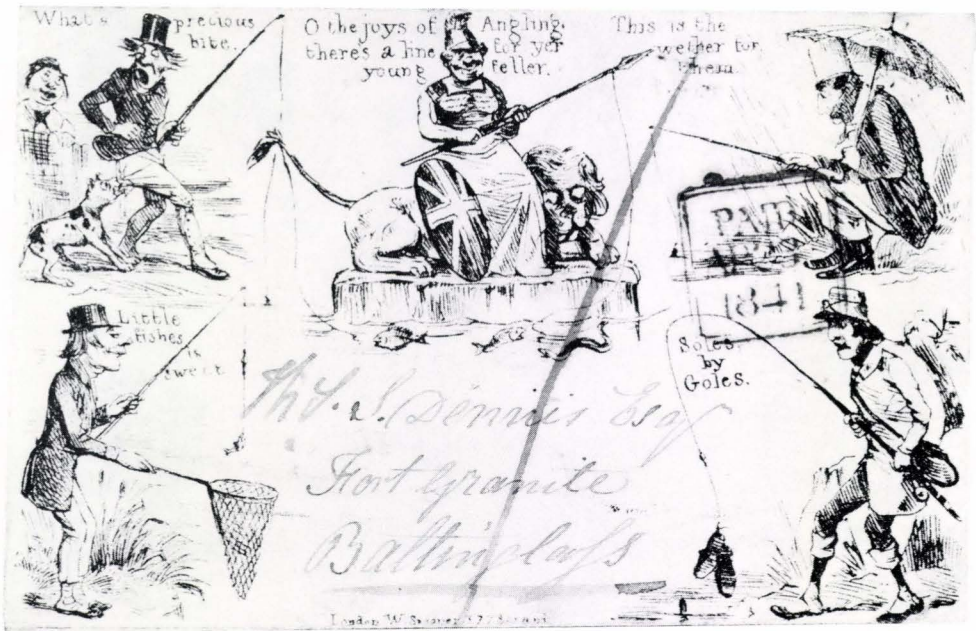 What a precious
bite.
O the joys of Angling.
there's a line for yer
young feller.
This is the
wether for
them.
PAID
1841
Little
fishes
is
sweet
Soles
by
Goles.
S. Dennis Esq
Fort Granite
Baltinglass
London W. Spooner 377 Strand